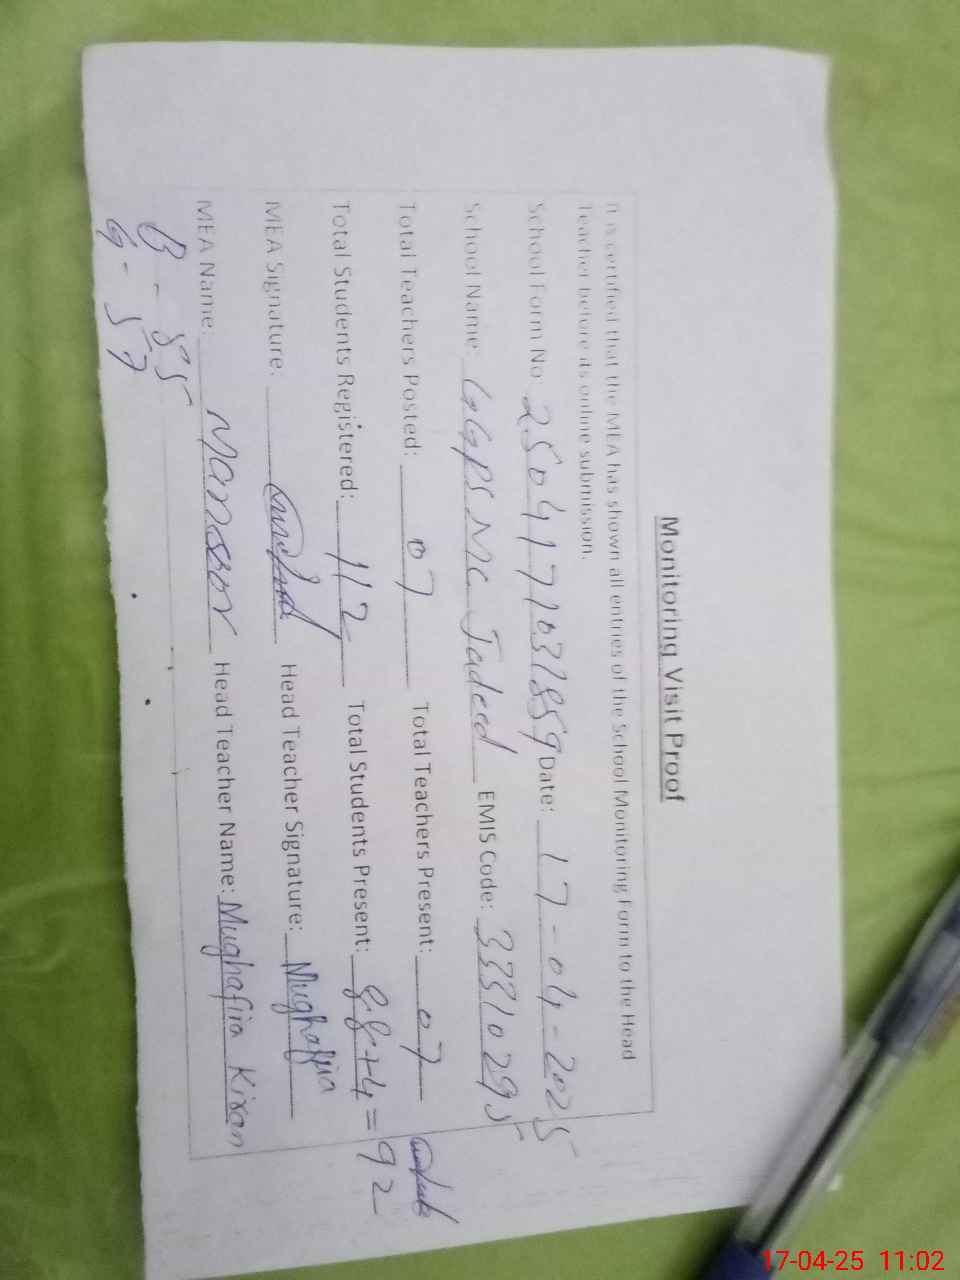 Monitoring Visit Proof
It is certified that the MEA has shown all entries of the School Monitoring Form to the Head
Teacher before its online submission.
School Form No: 25041771031859 Date: 17-04-2025
School Name: GGPS MC Jadeed EMIS Code: 33310295
Total Teachers Posted: 07 Total Teachers Present: 07
Total Students Registered: 112 Total Students Present: 88+4=92
MEA Signature: Head Teacher Signature: Mughaffia
MEA Name: Mansoor Head Teacher Name: Mughafira Kiran
B - 85
G - 57
17-04-25 11:02